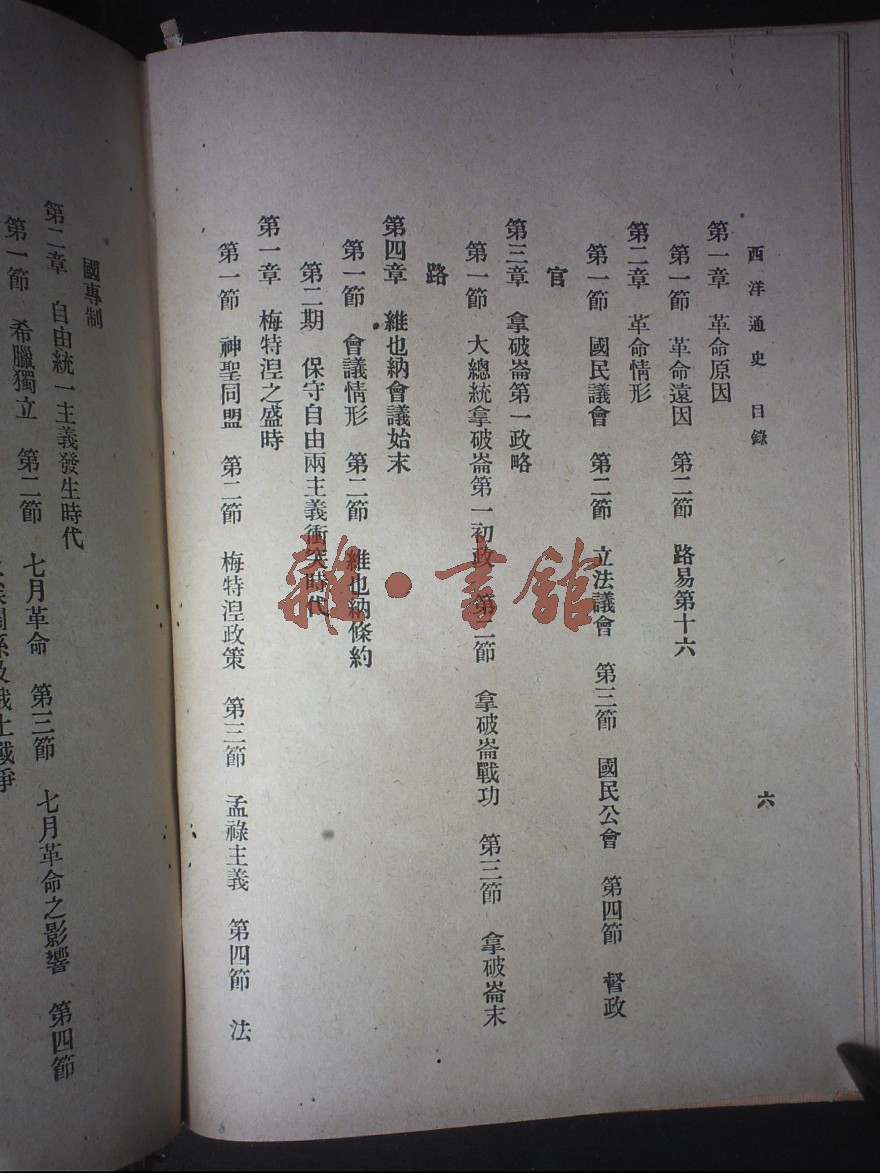 西洋通史 目錄 六
第一章 革命原因
第一節 革命遠因 第二節 路易第十六
第二章 革命情形
第一節 國民議會 第二節 立法議會 第三節 國民公會 第四節 督政
官
第三章 拿破崙第一政略
第一節 大總統拿破崙第一初政 第二節 拿破崙戰功 第三節 拿破崙末
路
第四章 維也納會議始末
第一節 會議情形 第二節 維也納條約
第二期 保守自由兩主義衝突時代
第一章 梅特湼之盛時
第一節 神聖同盟 第二節 梅特湼政策 第三節 孟祿主義 第四節 法
國專制
第二章 自由統一主義發生時代
第一節 希臘獨立 第二節 七月革命 第三節 七月革命之影響 第四節
雜·書館